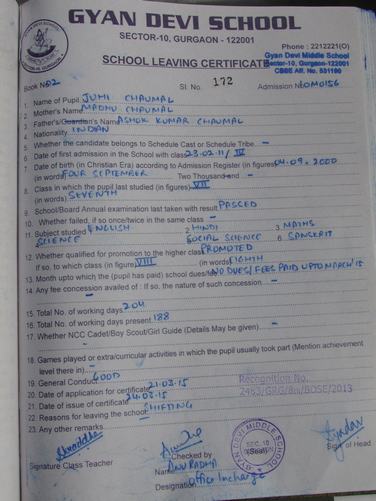 GYAN DEVI SCHOOL
SECTOR-10, GURGAON - 122001
Phone : 2212221(O)
SCHOOL LEAVING CERTIFICATE
Gyan Devi Middle School
Sector-10, Gurgaon-122001
CBSE Aff. No. 531190
Book No 02 Sl. No. 172 Admission No EOM0156
1. Name of Pupil JUHI CHAUMAL
2. Mother's Name MADHU CHAUMAL
3. Father's/Guardian's Name ASHOK KUMAR CHAUMAL
4. Nationality INDIAN
5. Whether the candidate belongs to Schedule Cast or Schedule Tribe -
6. Date of first admission in the School with class 23.02.11/ IV
7. Date of birth (in Christian Era) according to Admission Register (in figures) 04.09.2000
(in words) FOUR SEPTEMBER Two Thousand and -
8. Class in which the pupil last studied (in figures) VII
(in words) SEVENTH
9. School/Board Annual examination last taken with result PASSED
10. Whether failed, if so once/twice in the same class -
11. Subject studied ENGLISH 2 HINDI 3 MATHS
SCIENCE SOCIAL SCIENCE 6 SANSKRIT
12. Whether qualified for promotion to the higher class PROMOTED
If so, to which class (in figure) VIII (in words) EIGHTH
13. Month upto which the (pupil has paid) school dues/fee NO DUES/ FEES PAID UPTO MARCH'15
14. Any fee concession availed of : If so, the nature of such concession -
15. Total No. of working days 204
16. Total No. of working days present 188
17. Whether NCC Cadet/Boy Scout/Girl Guide (Details May be given) -
18. Games played or extra/curricular activities in which the pupil usually took part (Mention achievement
level there in) -
19. General Conduct GOOD
20. Date of application for certificate 21.03.15
21. Date of issue of certificate 24.03.15
22. Reasons for leaving the school SHIFTING
23. Any other remarks
Recognition No.
2463/GRG/8m/BOSE/2013
GYAN DEVI MIDDLE SCHOOL
SEC. 10
(Seal)
Signature Class Teacher
Checked by
Name ANURADHA
Designation Office Incharge
Sign of Head